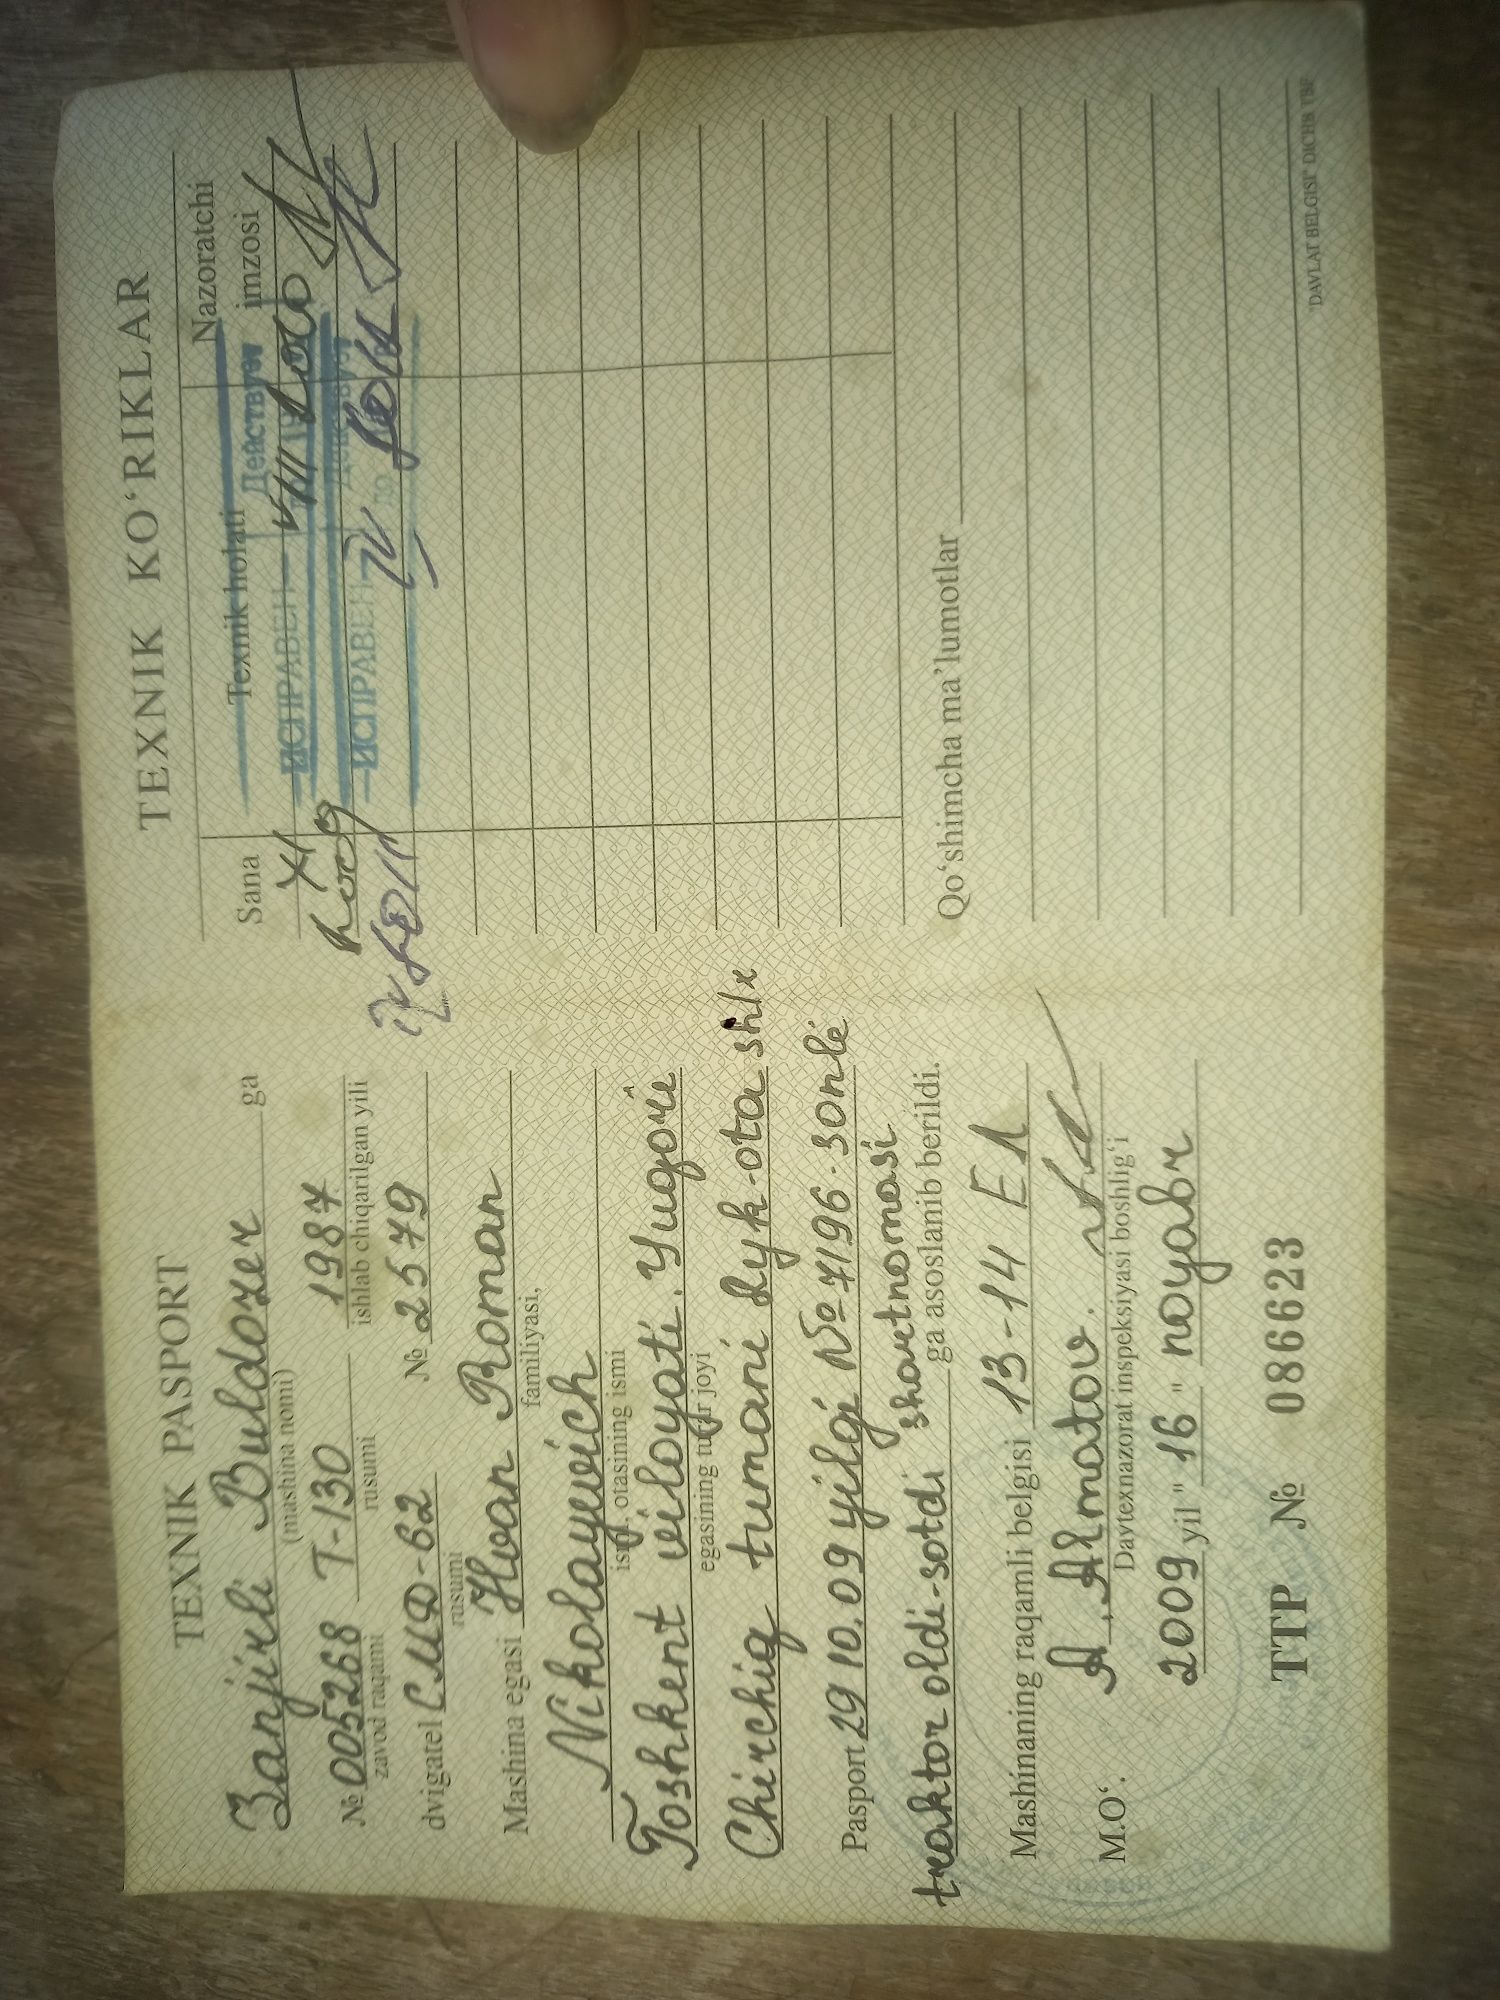 TEXNIK PASPORT
Zanjirli Buldozer ga
(mashina nomi)
№ 005268 T-130 1987
zavod raqami rusumi ishlab chiqarilgan yili
dvigatel СМД-62 № 2579
rusumi
Mashina egasi Roman
familiyasi,
Nikolayevich
ismi, otasining ismi
Toshkent viloyati. Yuqori
egasining turar joyi
Chirchiq tumani
Pasport 29 10.09 yilgi № 7196-sonli
traktor oldi-sotdi shartnomasi
ga asoslanib berildi.
Mashinaning raqamli belgisi 13-14 EA
A. Almatov.
M.O‘. Davtexnazorat inspeksiyasi boshlig‘i
2009 yil "16" noyabr
TTP № 086623
TEXNIK KO‘RIKLAR
Sana Texnik holati Nazoratchi imzosi
Действует
XI 2009 ИСПРАВЕН
ИСПРАВЕН до
Qo‘shimcha ma’lumotlar
"DAVLAT BELGISI" DICHB YBF